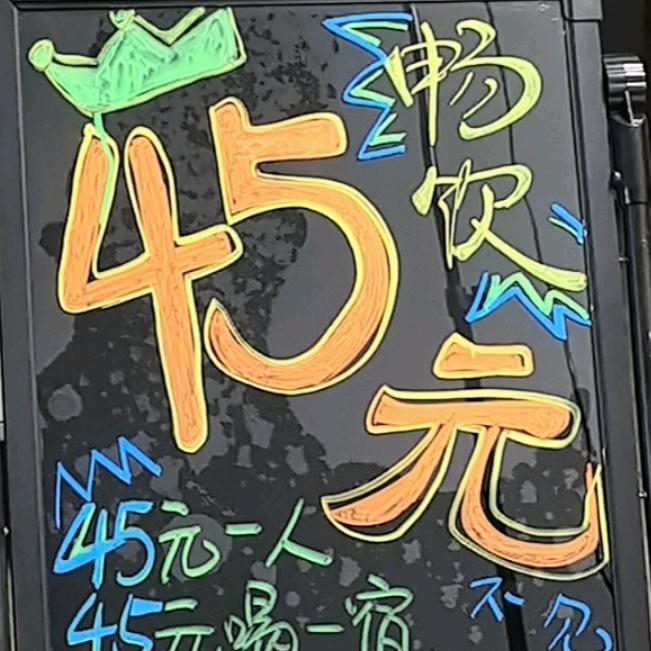 45元
畅饮
45元一人
45元喝一宿
不